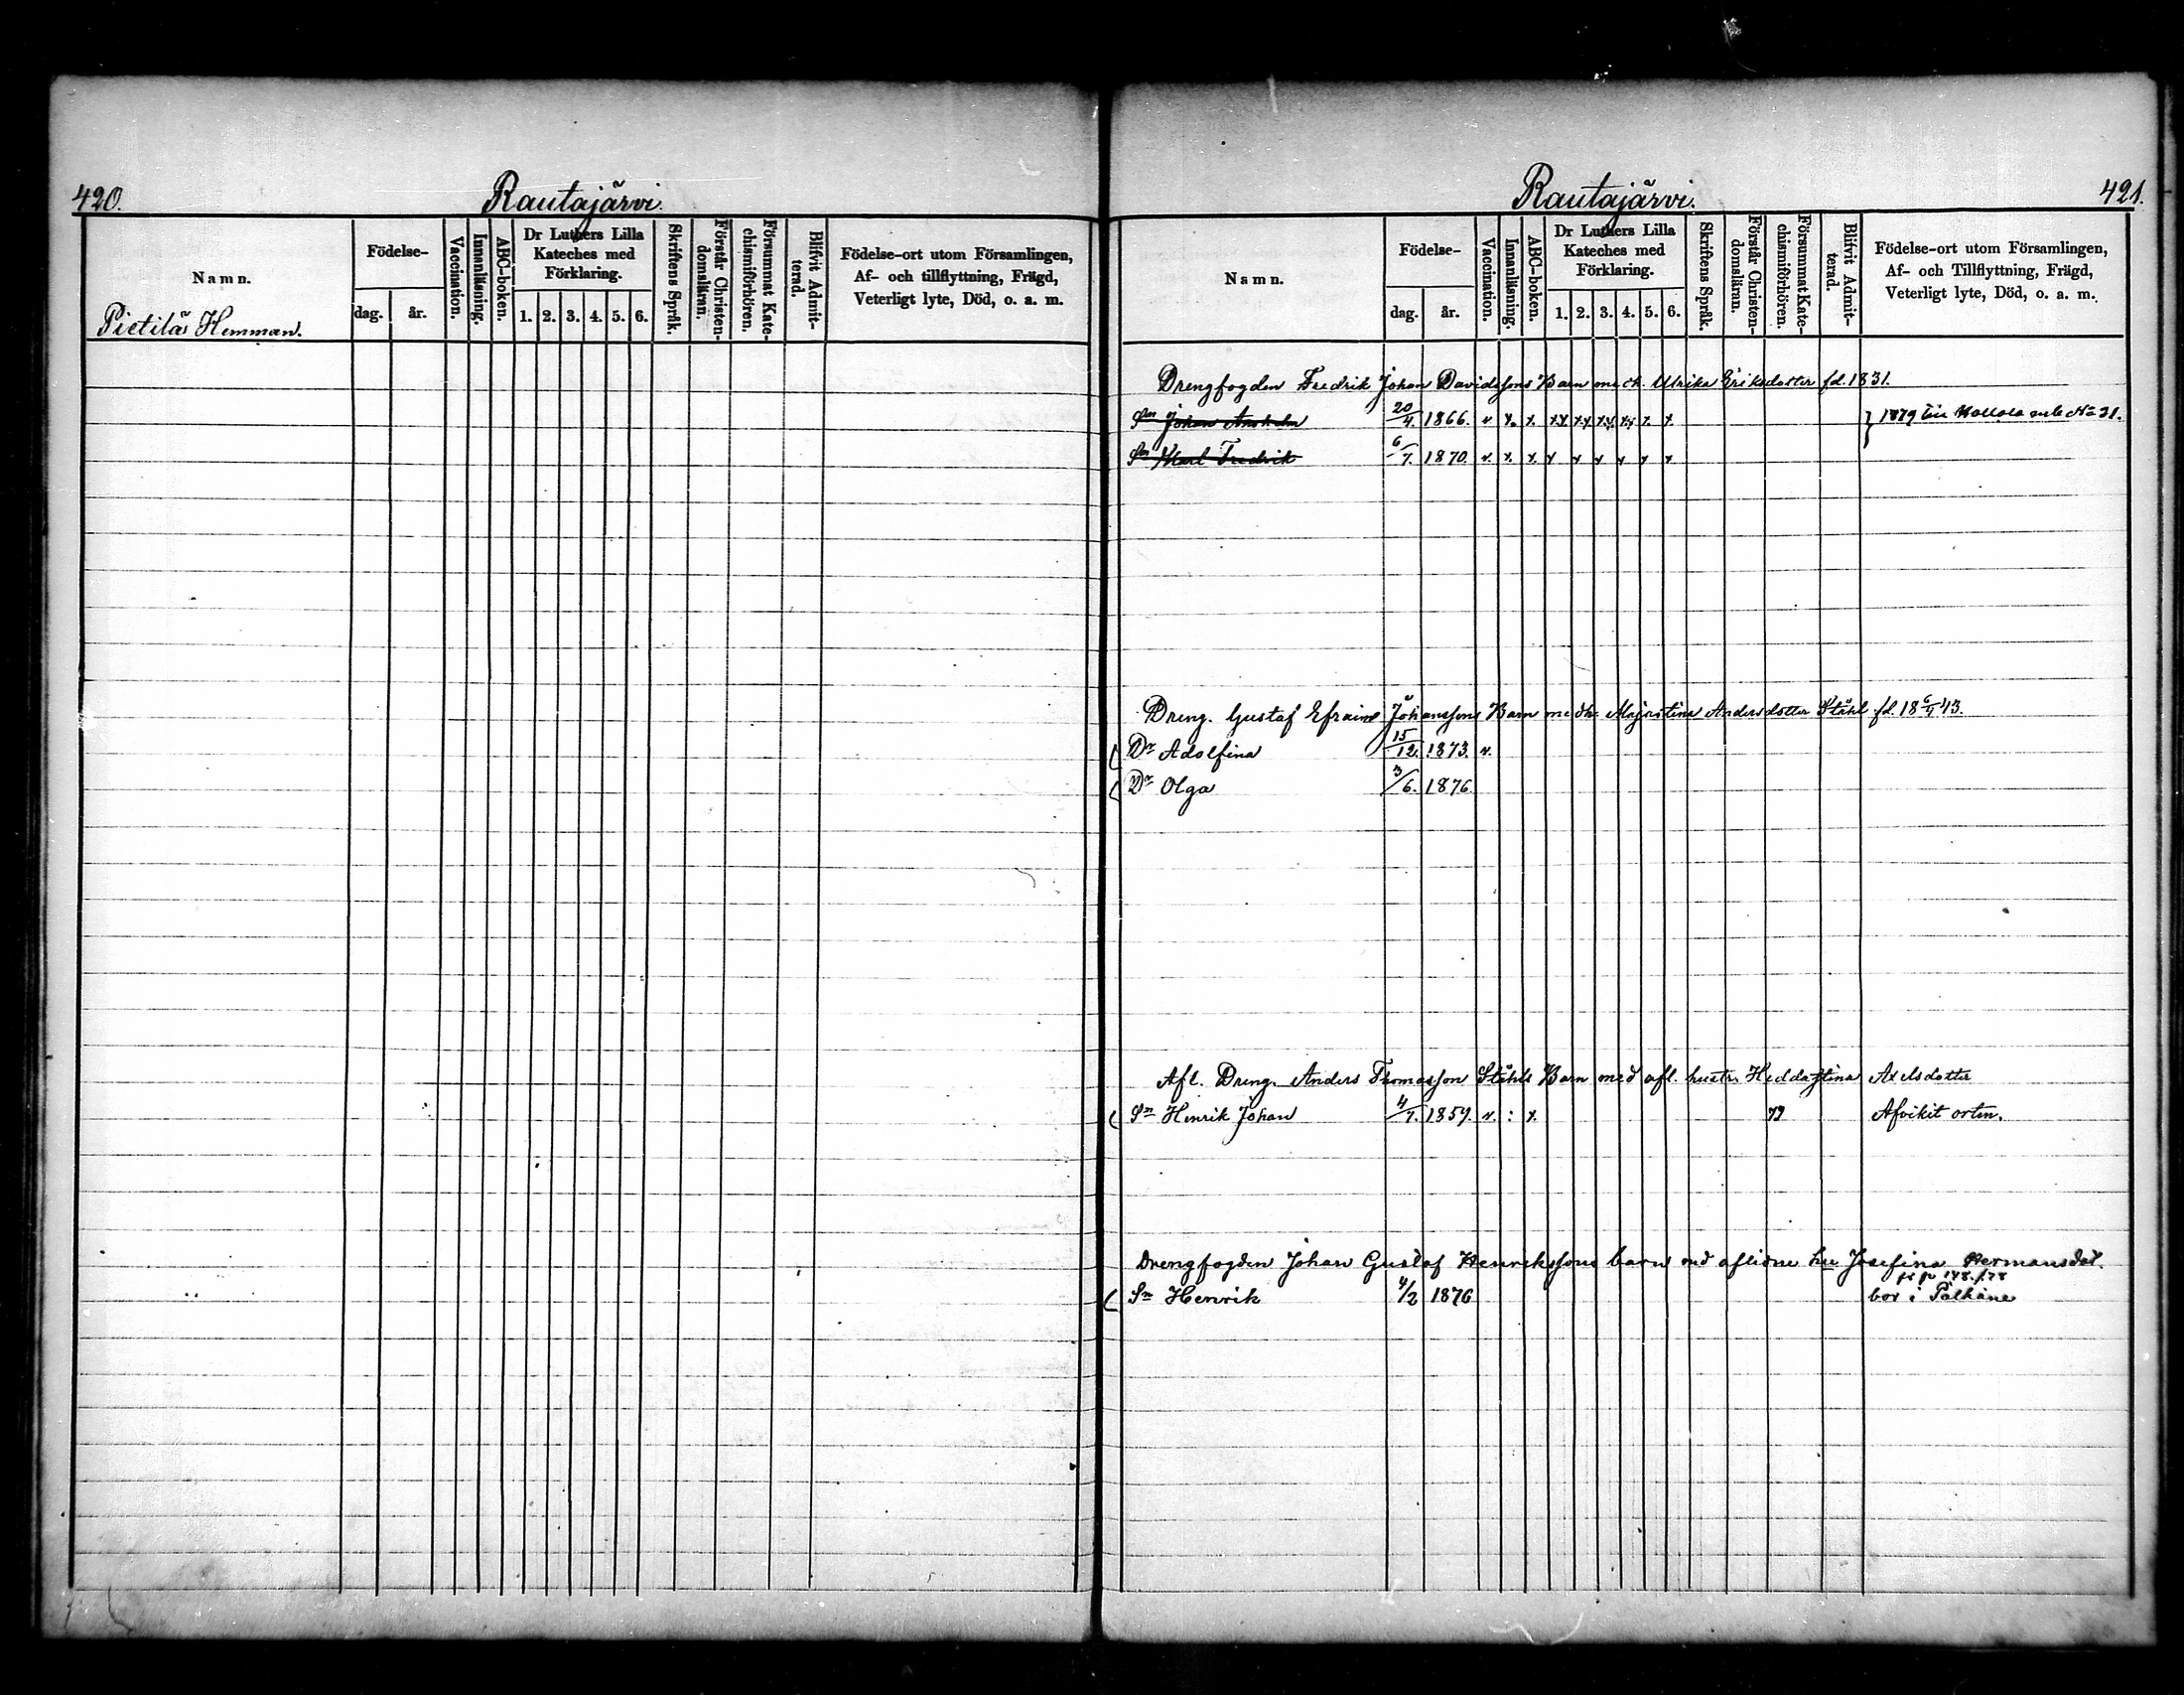 420.
Rautajärvi.
Namn.
Födelse-
dag.
år.
Vaccination.
Innanläsning.
ABC-boken.
Dr Luthers Lilla
Kateches med
Förklaring.
1. 2. 3. 4. 5. 6.
Skriftens Språk.
Förstår Christen-
domsläran.
Försummat Kate-
chismiförhören.
Blifvit Admit-
terad.
Födelse-ort utom Församlingen,
Af- och tillflyttning, Frägd,
Veterligt lyte, Död, o. a. m.
Pietilä Hemman.
Rautajärvi.
421.
Namn.
Födelse-
dag.
år.
Vaccination.
Innanläsning.
ABC-boken.
Dr Luthers Lilla
Kateches med
Förklaring.
1. 2. 3. 4. 5. 6.
Skriftens Språk.
Förstår Christen-
domsläran.
Försummat Kate-
chismiförhören.
Blifvit Admit-
terad.
Födelse-ort utom Församlingen,
Af- och Tillflyttning, Frägd,
Veterligt lyte, Död, o. a. m.
Drengfogden Fredrik Johan Davidssons Barn med Ulrika Eriksdotter fd. 1831.
Sn Johan 20/4. 1866. v x. x. xx xx xx xx x. x } 1879 till No 21.
Sn Karl Fredrik 6/7. 1870. v. x. x x x x x x x
Dreng. Gustaf Efraim Johanssons Barn med Majastina Andersdotter Ståhl fd. 18 6/9 43.
( Dr Adolfina 15/12. 1873. v.
( Dr Olga 3/6. 1876.
Afl. Dreng. Anders Thomasson Ståhls Barn med afl. hustr. Heddastina Axelsdotter
( Sn Henrik Johan 4/7. 1857. v. : x. 79 Afvikit orten.
Drengfogden Johan Gustaf Henrikssons barn md aflidne hu Josefina Hermansdot.
( Sn Henrik 4/2 1876 bor i Pälkäne